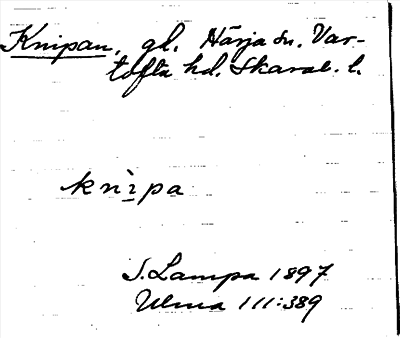 Knipan, gl. Härja sn. Var-
tofta hd. Skarab. l.
knìpa
S. Lampa 1897
Ulma 111:389